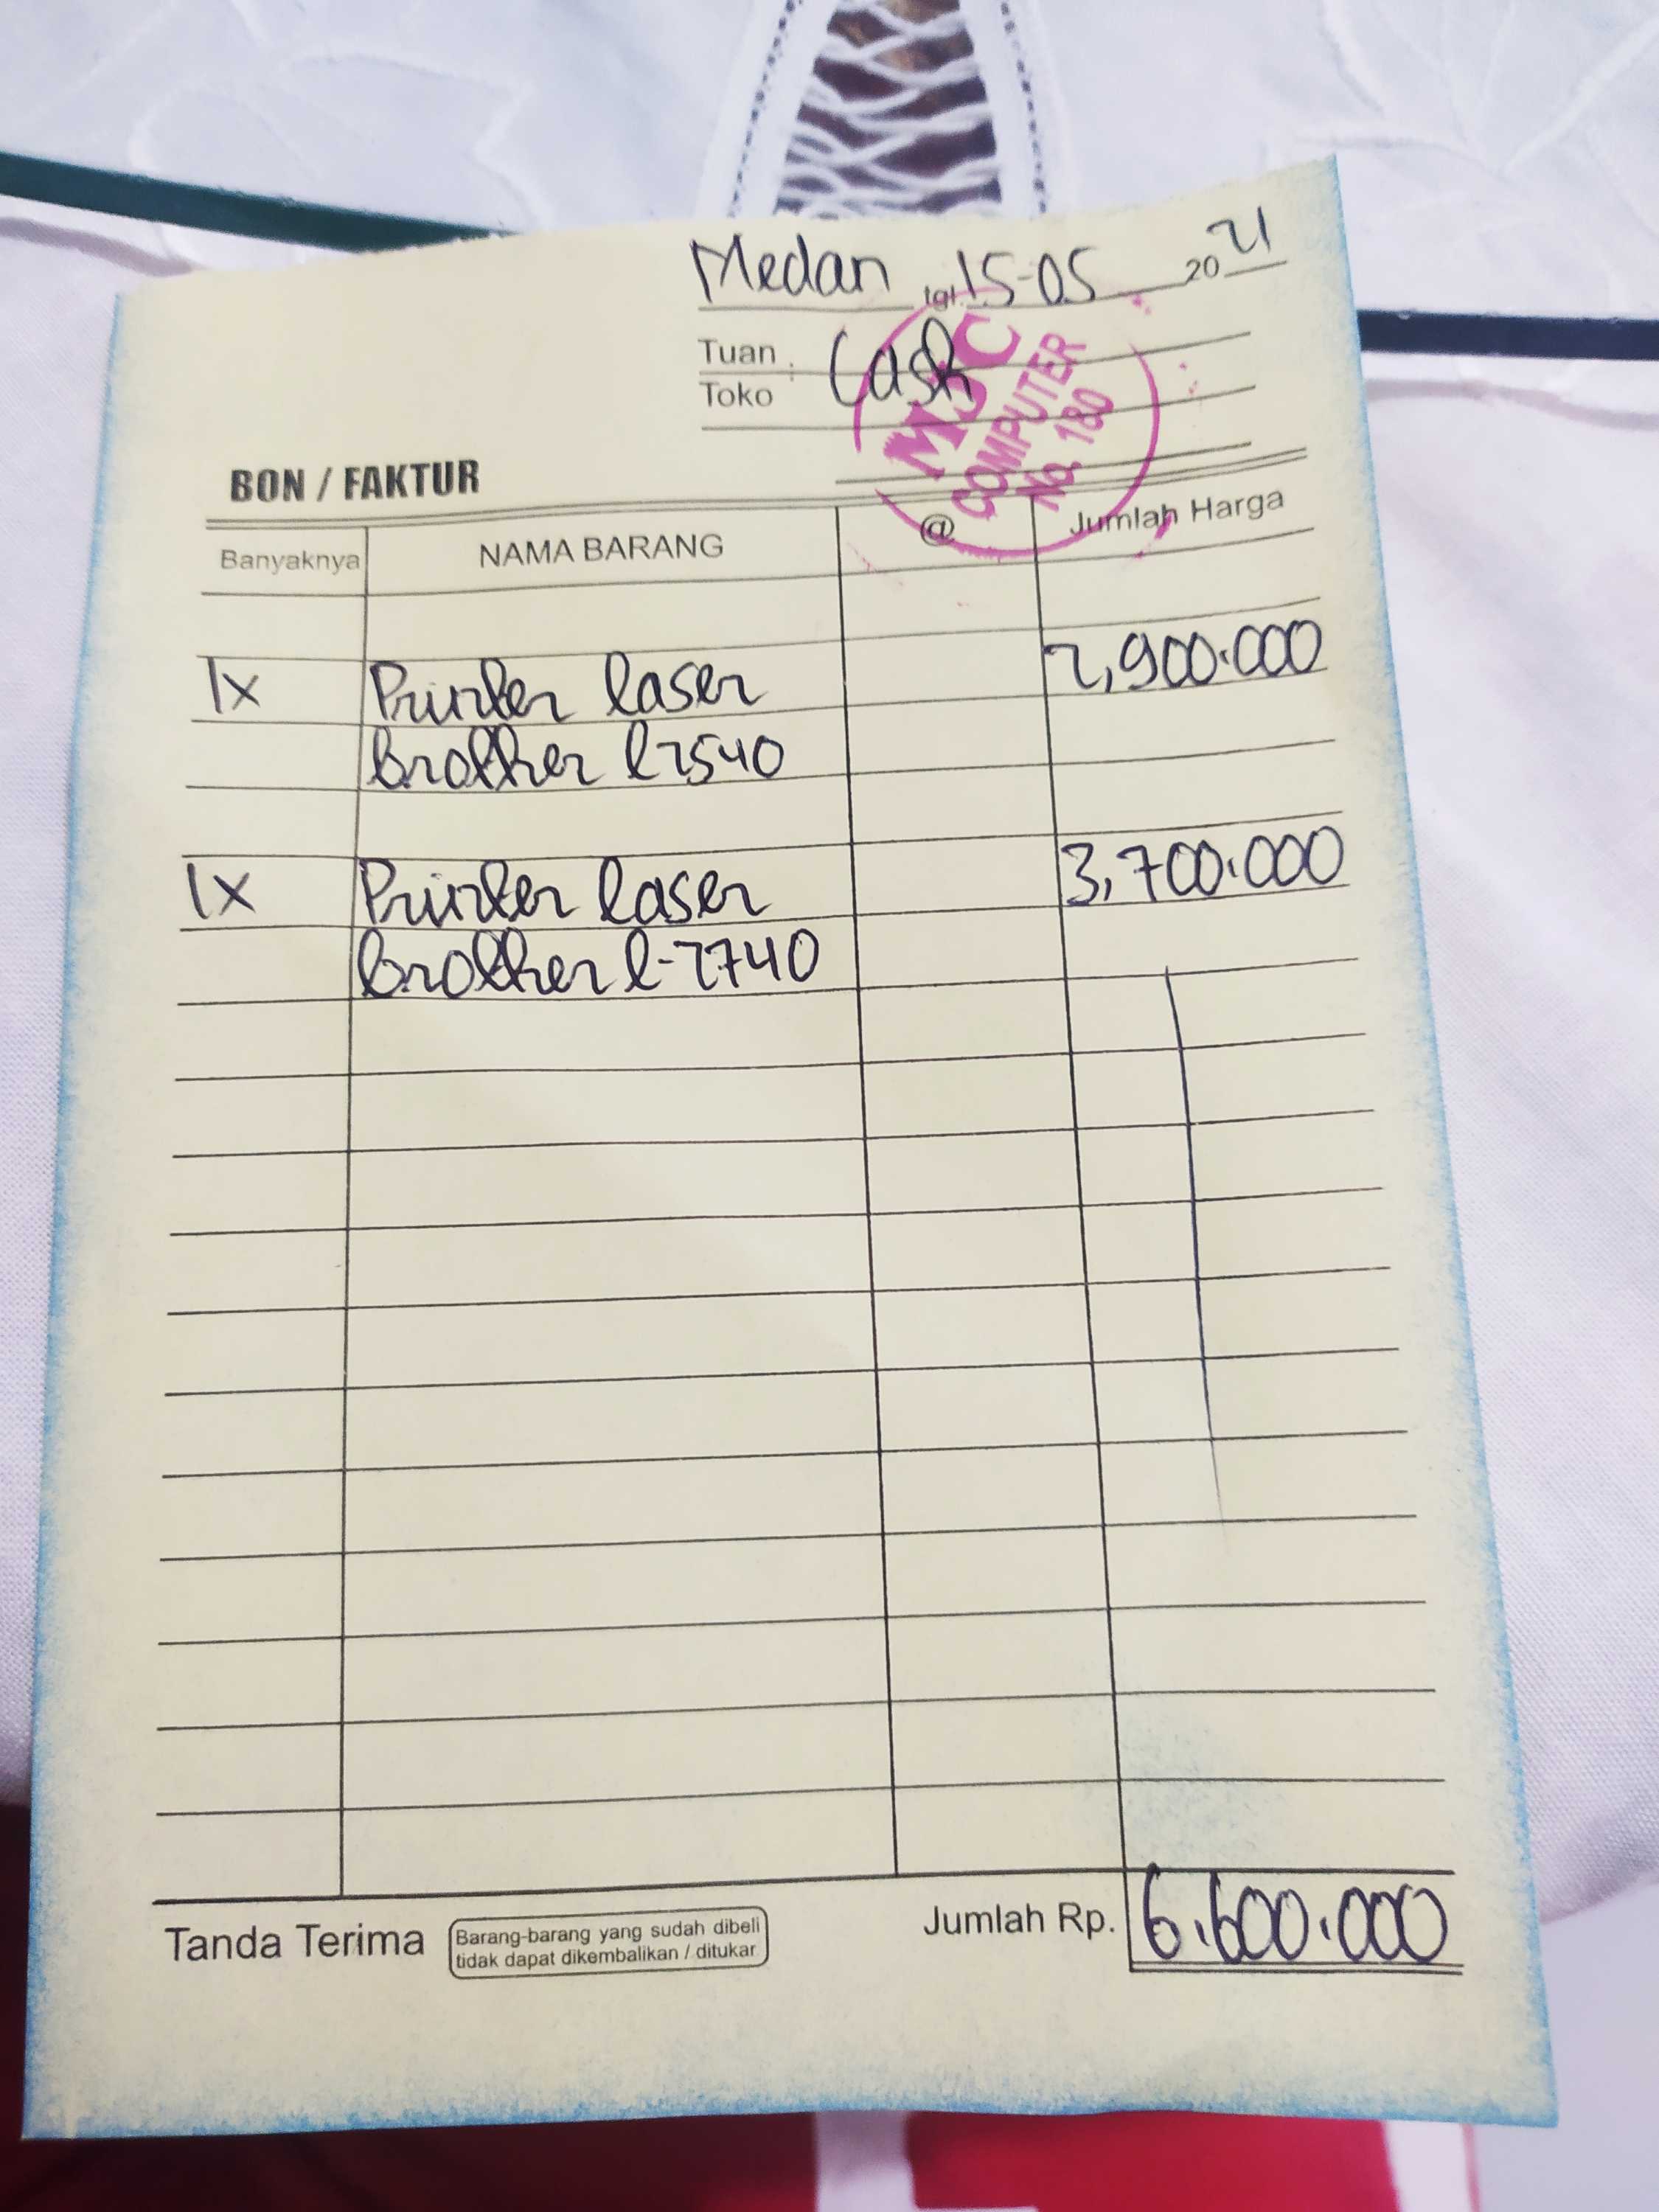 Medan tgl. 15-05 2021
Tuan : Cash
Toko :
MSC
COMPUTER
No. 180
BON / FAKTUR
Banyaknya NAMA BARANG @ Jumlah Harga
1x Printer laser 2,900.000
brother l2540
1x Printer laser 3,700.000
brother l-2740
Tanda Terima
Barang-barang yang sudah dibeli
tidak dapat dikembalikan / ditukar
Jumlah Rp. 6.600.000